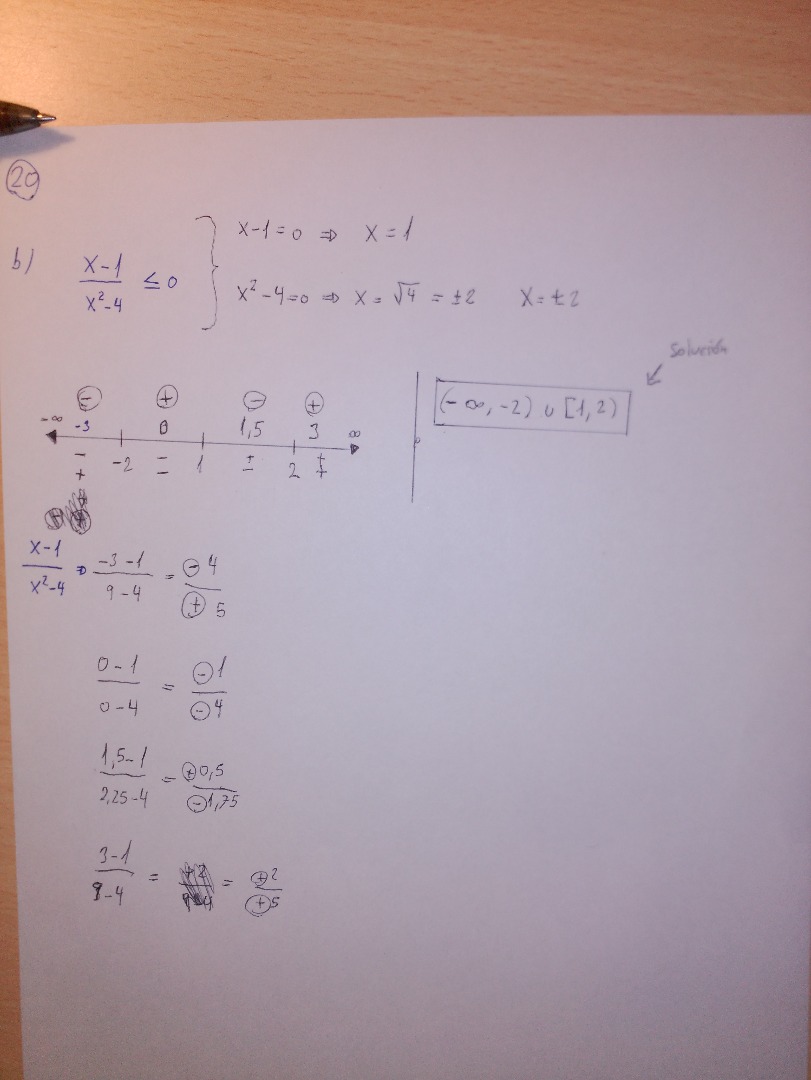 20
b) x-1 / x²-4 ≤ 0
x-1=0 ⇒ x=1
x²-4=0 ⇒ x=√4 = ±2 x=±2
Solución
(-∞, -2) ∪ [1, 2)
- + - +
-∞ -3 0 1,5 3 ∞
-2 1 2
- - + +
+ - - +
x-1 / x²-4 ⇒ -3-1 / 9-4 = -4 / +5
0-1 / 0-4 = -1 / -4
1,5-1 / 2,25-4 = +0,5 / -1,75
3-1 / 9-4 = = +2 / +5